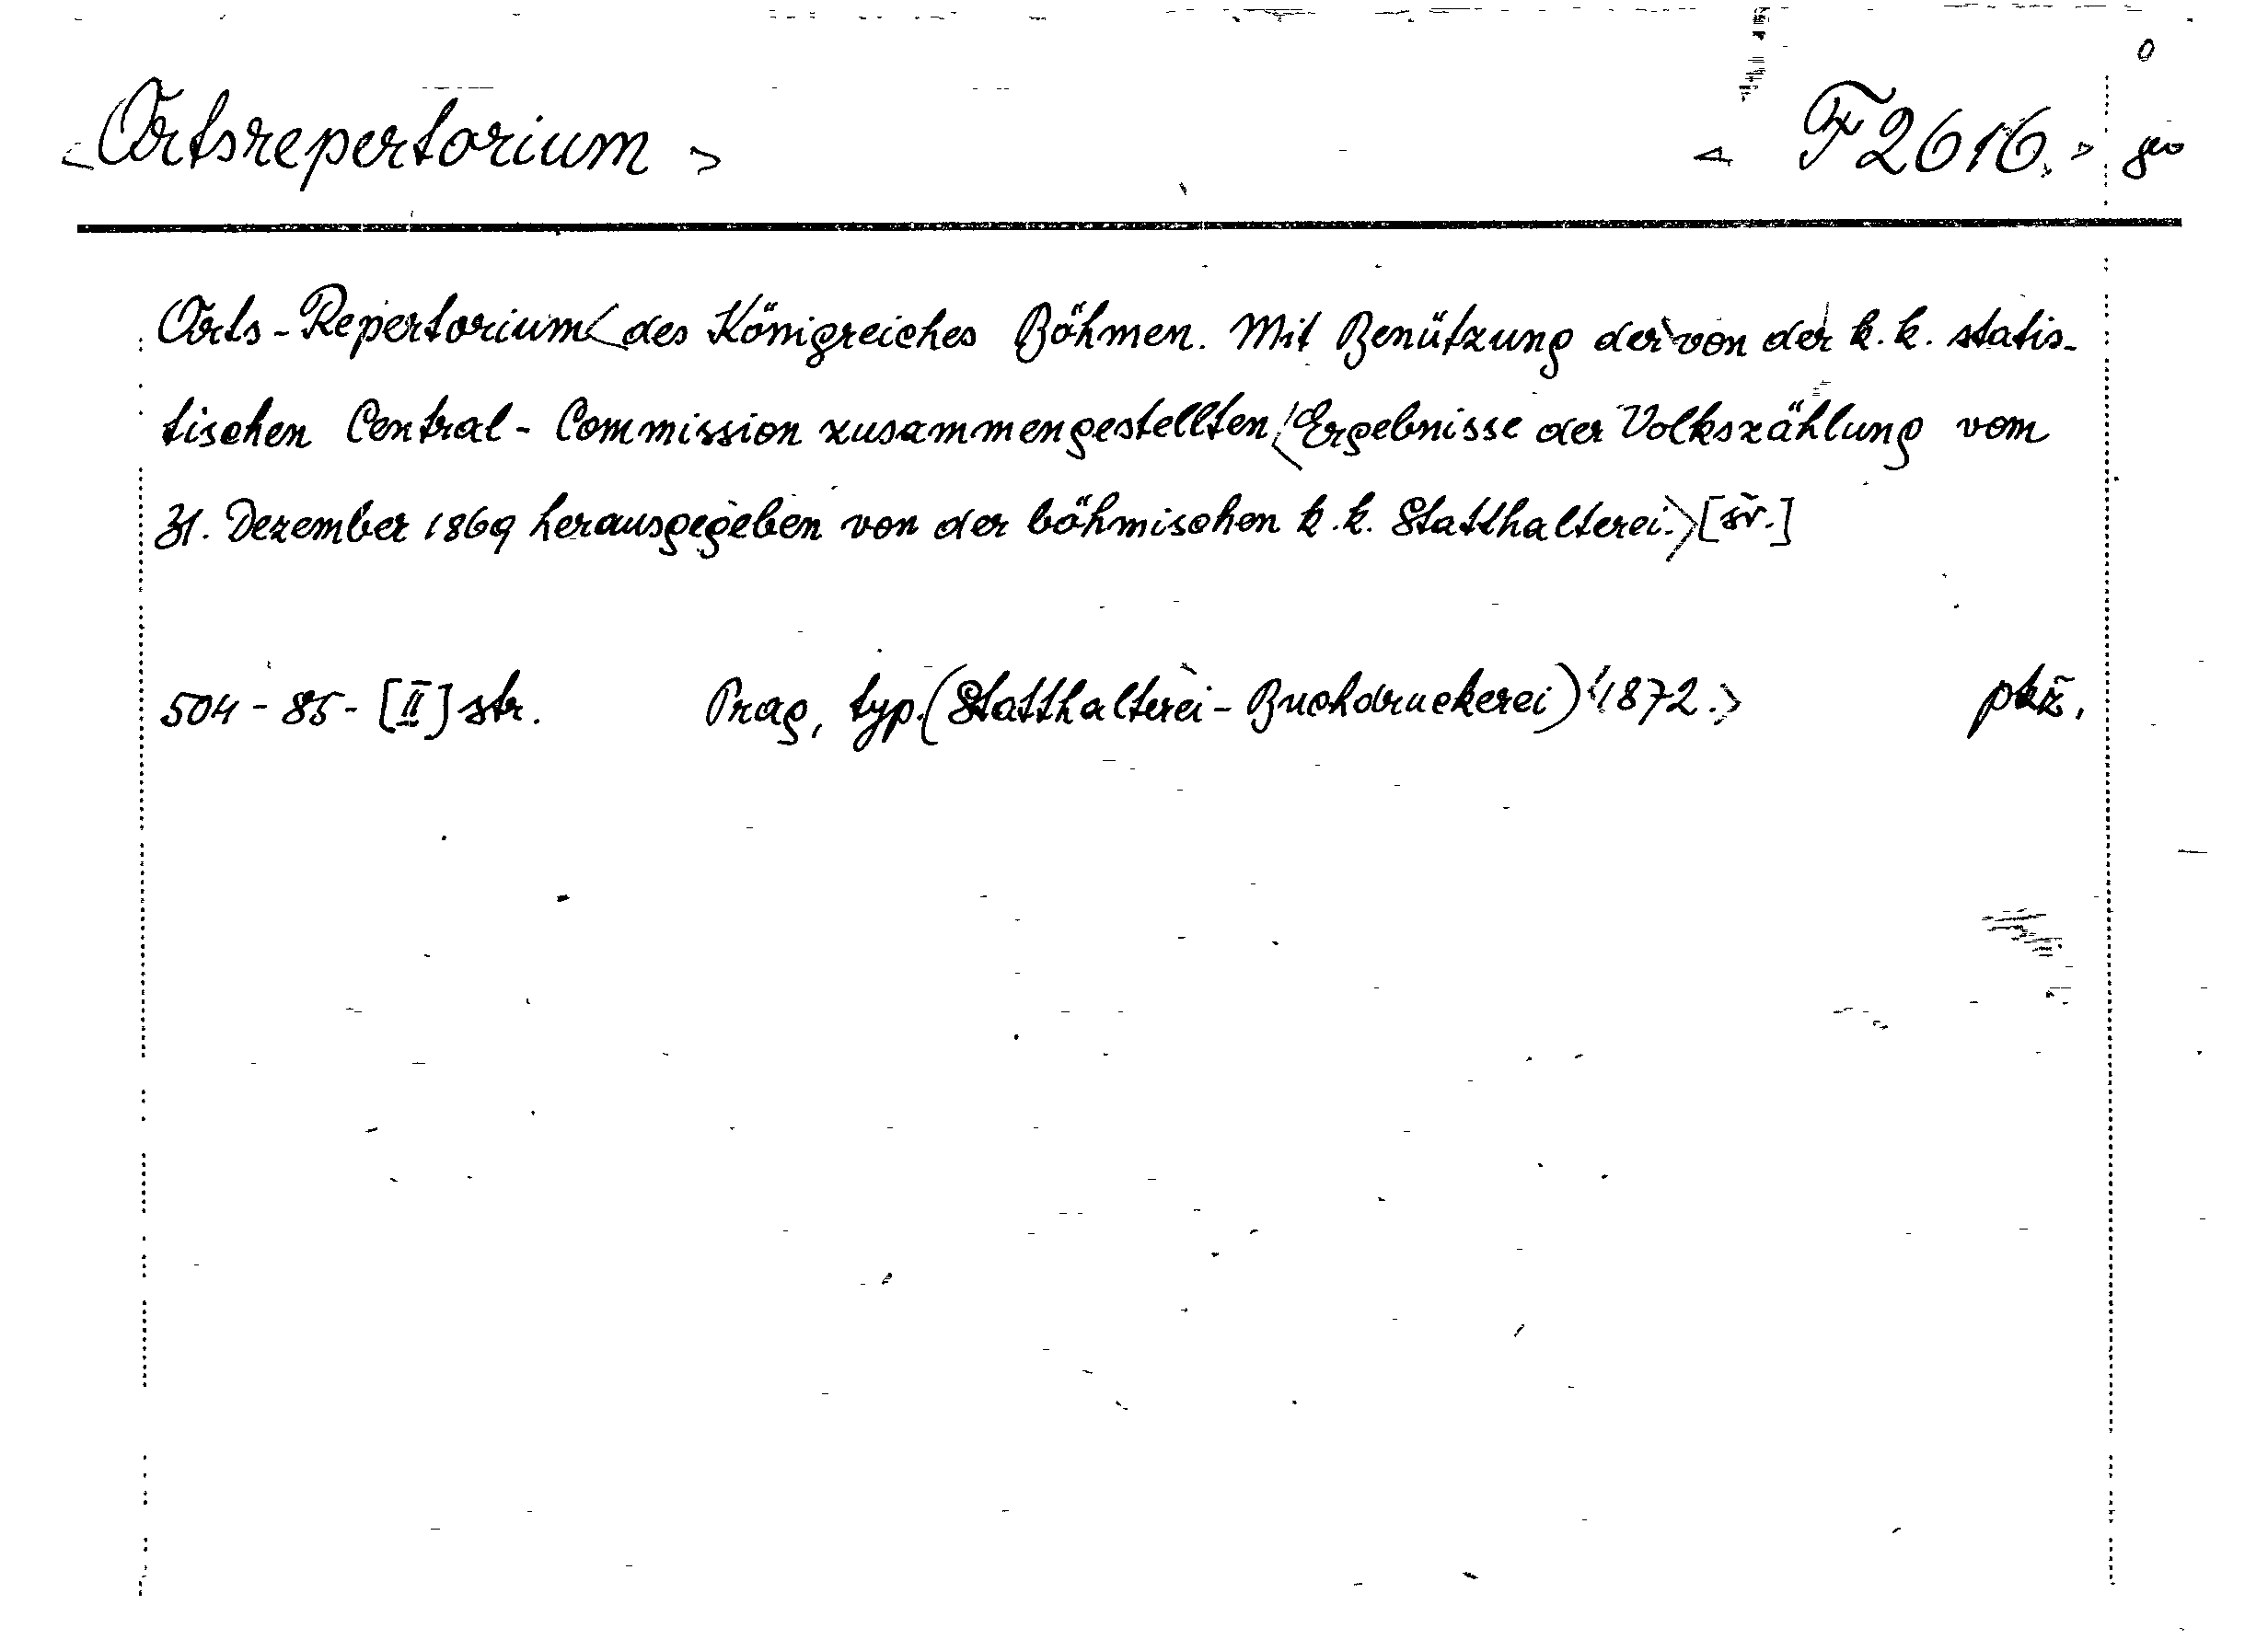 <Ortsrepertorium> <F2616.> geo
Orts-Repertorium <des Königreiches Böhmen. Mit Benützung der von der k.k. statis-
tischen Central-Commission zusammengestellten <Ergebnisse der Volkszählung vom
31. Dezember 1869 herausgegeben von der böhmischen k.k. Statthalterei.> [šv.]
504-85-[II] str. Prag, typ. (Statthalterei-Buchdruckerei) <1872.>